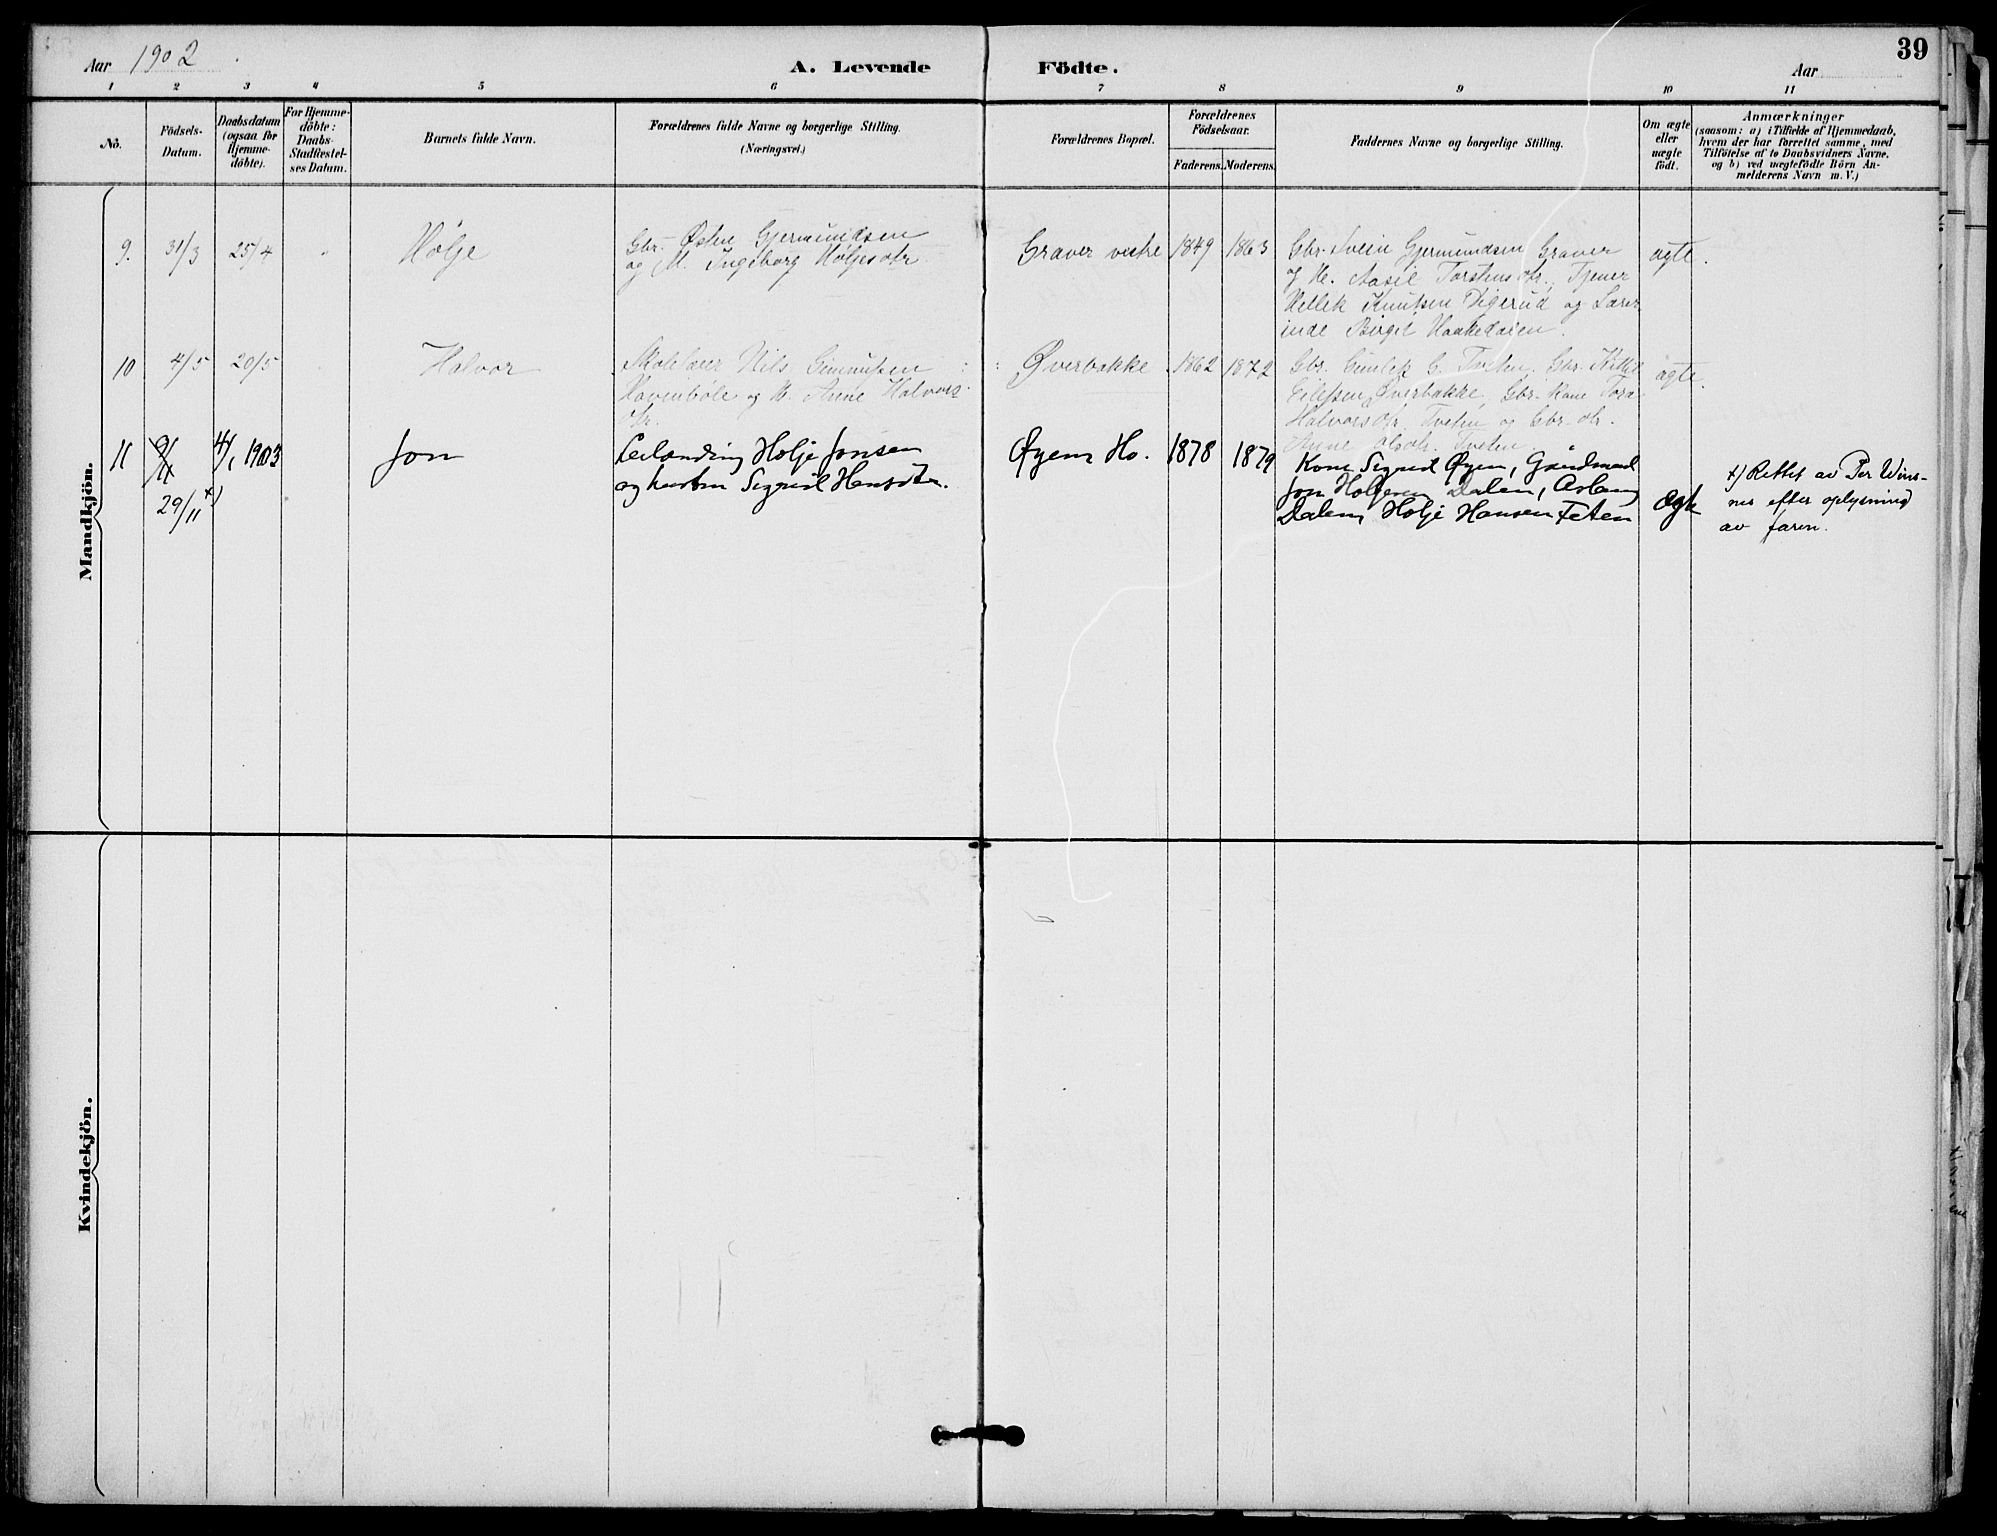 39
Aar 1902.
A. Levende Födte.
Aar
1 2 3 4 5 6 7 8 9 10 11
No.
Födsels-Datum.
Daabsdatum (ogsaa for Hjemme-döbte).
For Hjemme-döbte: Daabs-Stadfæstel-ses Datum.
Barnets fulde Navn.
Forældrenes fulde Navne og borgerlige Stilling.
(Næringsvei.)
Forældrenes Bopæl.
Forældrenes Födselsaar.
Faderens. Moderens.
Faddernes Navne og borgerlige Stilling.
Om ægte eller uægte födt.
Anmærkninger
(saasom: a) i Tilfælde af Hjemmedaab,
hvem der har forrettet samme, med
Tilföielse af to Daabsvidners Navne,
og b) ved uægtefödte Börn An-
melderens Navn m. V.)
Mandkjön.
9. 31/3 25/4 " Holje
Gbr. Østen Gjermundsen
og M. Ingeborg Holjesdtr.
Graver vestre 1849 1863
Gbr. Svein Gjermundsen Graver
og H. Aasil Torstensdtr., Tjener
Hellek Knutsen Digerud og Lærer
inde Birgit Haakedalen.
ægte.
10 4/5 20/5 Halvor
Skolelærer Nils Gunnulfsen
Hovenbøle og H. Anne Halvors-
dtr.
Øverbakke 1862 1872
Gbr. Gunlek G. Tveten, Gbr. Kittil
Eilefsen Øverbakke, Gbr. Kone Tora
Halvorsdtr. Tveten og Gbr. dtr.
Anne Tveten
ægte.
11 9/11 29/11 x) 4/1 1903 Jon
Leilænding Holje Jonsen
og hustru Sigrid Hansdtr.
Øyen Ho. 1878 1879
Kone Sigrid Øyen, Gaardmand
Jon Holjesen Dalen, Aslaug
Dalen, Holje Hansen Teten
ægte
x) Rettet av Per Wins-
nes efter oplysning
av faren.
Kvindekjön.